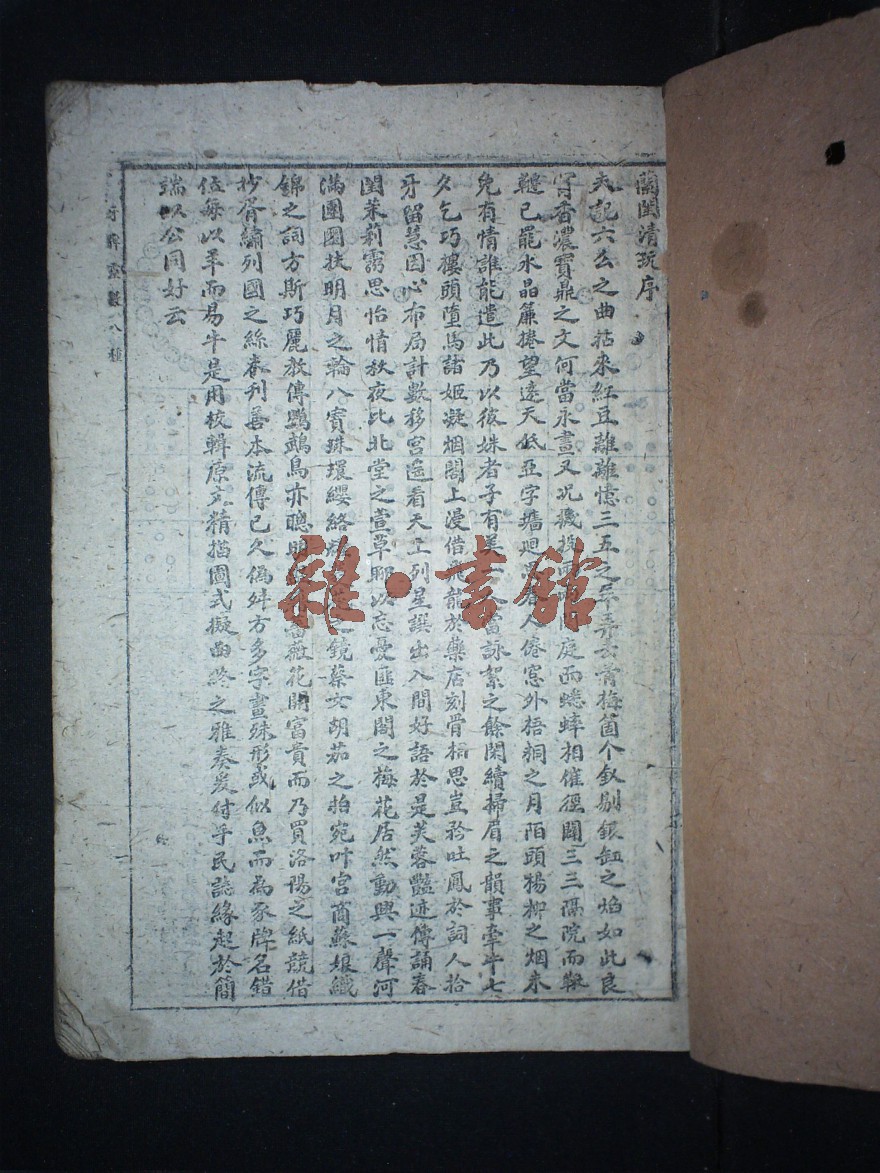 蘭閨清玩序
夫記六么之曲拈來紅豆離離憶三五之年弄去青梅箇个釵剔銀缸之焰如此良
宵香濃寶鼎之文何當永晝又況機投而庭而蟋蟀相催徑闢三三隔院而鞦
韆已罷水晶簾捲望遠天低亞字墻迴居人倦窓外梧桐之月陌頭楊柳之烟未
免有情誰能遣此乃以彼姝者子有美一人當詠絮之餘閑續掃眉之韻事牽牛七
夕乞巧樓頭墮馬諸姬凝烟閣上漫借飛龍於藥店刻骨相思豈矜吐鳳於詞人拾
牙留慧因心布局計數移宮遙看天上列星譔出人間好語於是芙蓉豔迹傳誦春
閨茉莉霧思怡情秋夜比北堂之萱草聊以忘憂匪東閣之梅花居然動興一聲河
滿團圞扶明月之輪八寶珠環纓絡之鏡蔡女胡茄之拍宛叶宮商蘇娘織
錦之詞方斯巧麗教傳鸚鵡鳥亦聰明薔薇花開富貴而乃買洛陽之紙競借
抄胥繡列國之絲春刊善本流傳已久偽舛方多字畫殊形或似魚而為豕牌名錯
伍每以羊而易牛是用校輯原文精描圖式擬曲終之雅奏爰付手民誌緣起於簡
端以公同好云
牌靈數八種
雜·書館